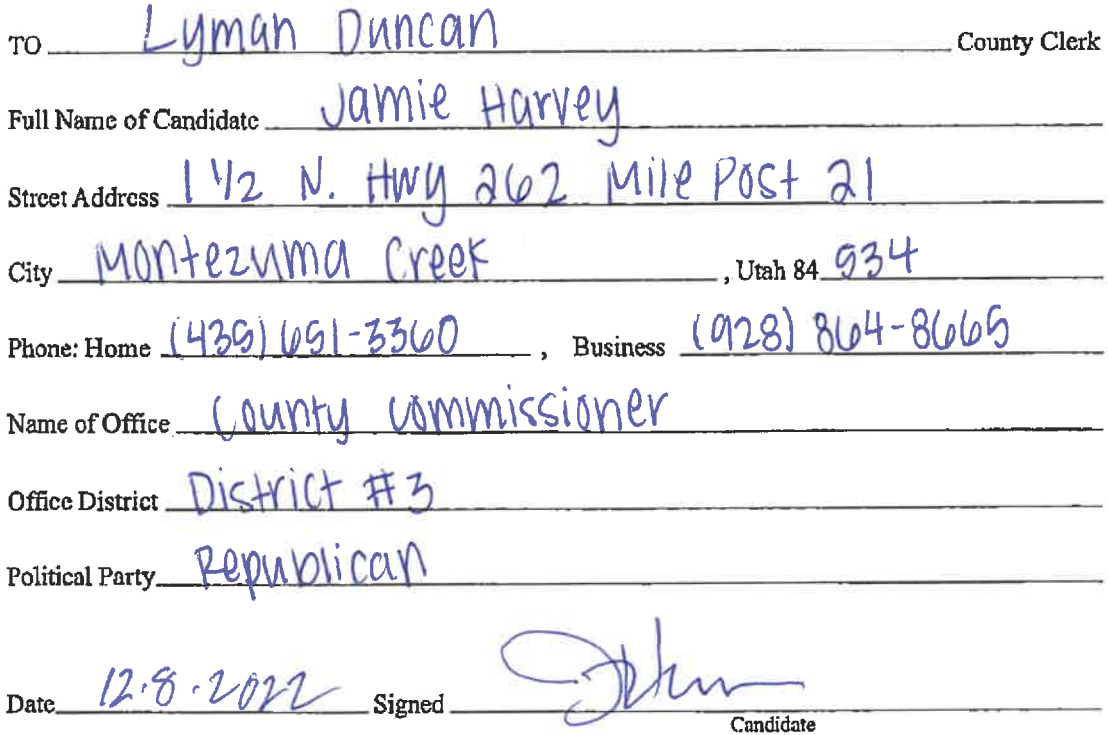 TO Lyman Duncan County Clerk
Full Name of Candidate Jamie Harvey
Street Address 1 1/2 N. Hwy 262 Mile Post 21
City Montezuma Creek, Utah 84 534
Phone: Home (435) 651-3360, Business (928) 864-8665
Name of Office County Commissioner
Office District District #3
Political Party Republican
Date 12.8.2022 Signed
Candidate